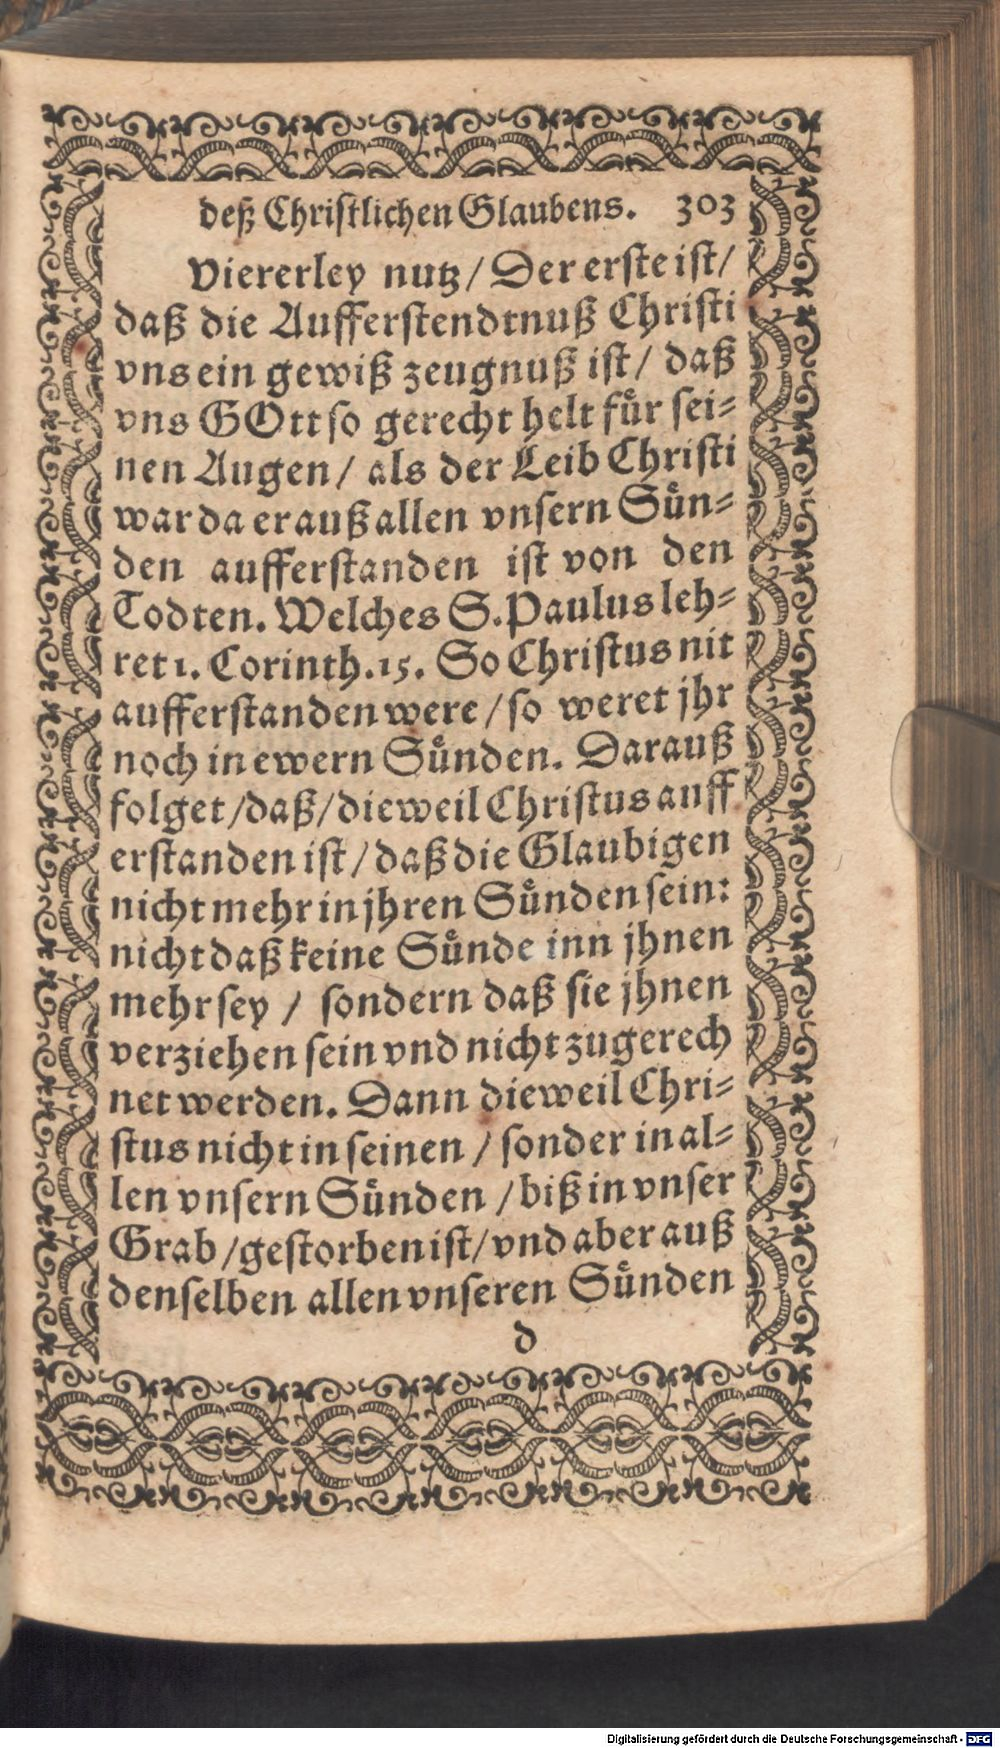 deß Christlichen Glaubens. 303
Viererley nutz / Der erste ist /
daß die Aufferstendtnuß Christi
vns ein gewiß zeugnuß ist / daß
vns GOtt so gerecht helt fuͤr sei-
nen Augen / als der Leib Christi
war da er auß allen vnsern Suͤn-
den aufferstanden ist von den
Todten. Welches S. Paulus leh-
ret 1. Corinth. 15. So Christus nit
aufferstanden were / so weret jhr
noch in ewern Suͤnden. Darauß
folget / daß / dieweil Christus auff
erstanden ist / daß die Glaubigen
nicht mehr in jhren Suͤnden sein:
nicht daß keine Suͤnde inn jhnen
mehr sey / sondern daß sie jhnen
verziehen sein vnd nicht zugerech
net werden. Dann dieweil Chri-
stus nicht in seinen / sonder in al-
len vnsern Suͤnden / biß in vnser
Grab / gestorben ist / vnd aber auß
denselben allen vnseren Suͤnden
d
Digitalisierung gefördert durch die Deutsche Forschungsgemeinschaft - DFG